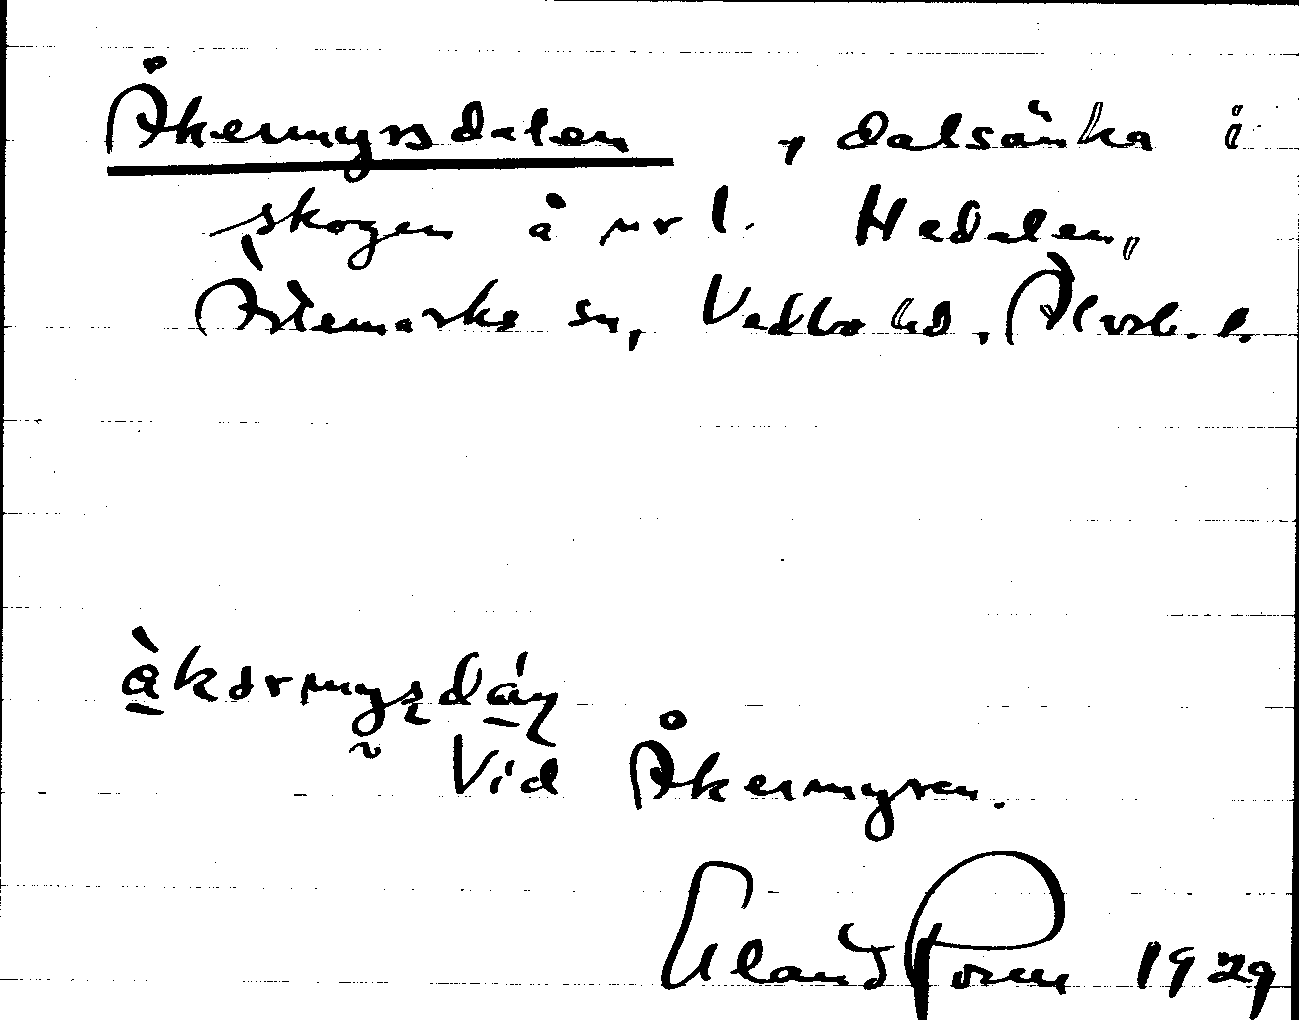 Åkermyrsdalen, dalsänka i
skogen å nrl. Hedalen,
Ärtemarks sn, Vedbo hd. Älvsb. l.
Vid Åkermyren.
Erland Rosell 1929